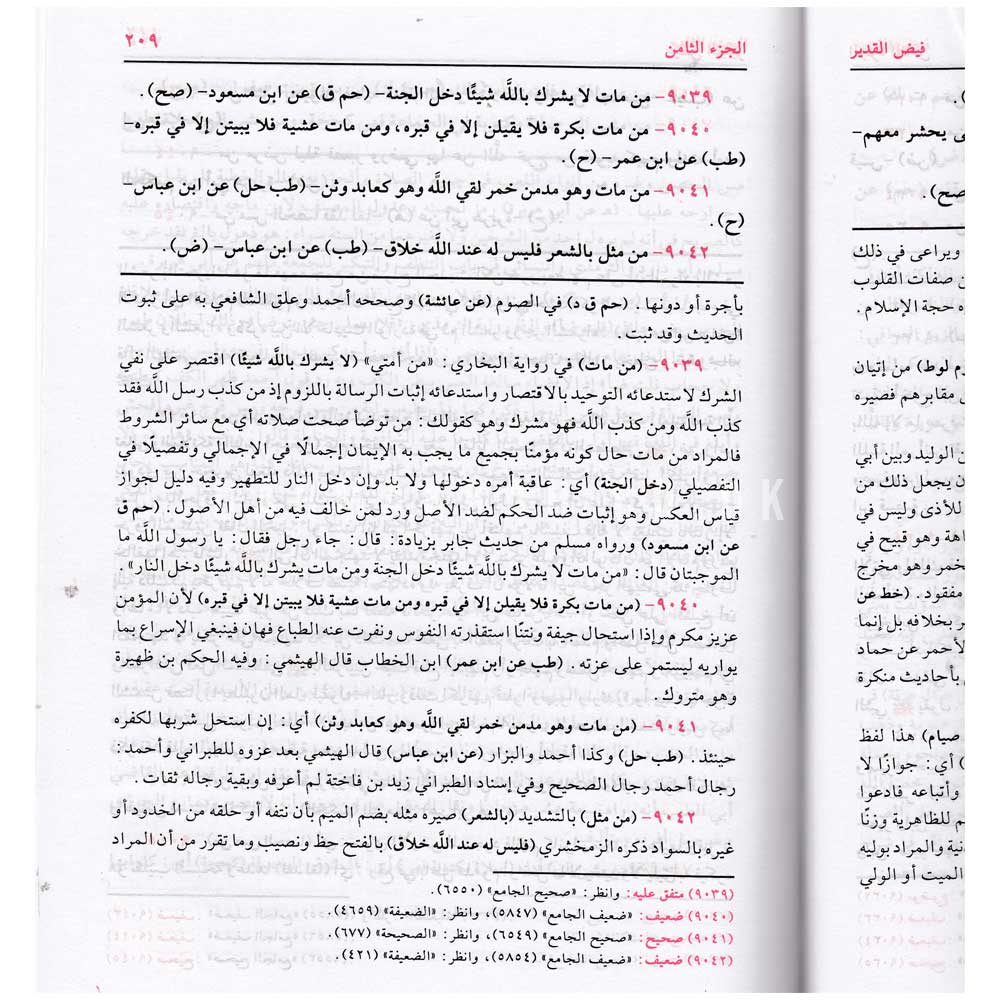 فيض القدير
الجزء الثامن
٢٠٩
٩٠٣٩- من مات لا يشرك باللَّه شيئًا دخل الجنة- (حم ق) عن ابن مسعود- (صح).
٩٠٤٠- من مات بكرة فلا يقيلن إلا في قبره، ومن مات عشية فلا يبيتن إلا في قبره-
(طب) عن ابن عمر- (ح).
٩٠٤١- من مات وهو مدمن خمر لقي اللَّه وهو كعابد وثن- (طب حل) عن ابن عباس-
(ح).
٩٠٤٢- من مثل بالشعر فليس له عند اللَّه خلاق- (طب) عن ابن عباس- (ض).
بأجرة أو دونها. (حم ق د) في الصوم (عن عائشة) وصححه أحمد وعلق الشافعي به على ثبوت
الحديث وقد ثبت.
٩٠٣٩- (من مات) في رواية البخاري: «من أمتي» (لا يشرك باللَّه شيئًا) اقتصر على نفي
الشرك لاستدعائه التوحيد بالاقتصار واستدعائه إثبات الرسالة باللزوم إذ من كذب رسل اللَّه فقد
كذب اللَّه ومن كذب اللَّه فهو مشرك وهو كقولك: من توضأ صحت صلاته أي مع سائر الشروط
فالمراد من مات حال كونه مؤمنًا بجميع ما يجب به الإيمان إجمالًا في الإجمالي وتفصيلًا في
التفصيلي (دخل الجنة) أي: عاقبة أمره دخولها ولا بد وإن دخل النار للتطهير وفيه دليل لجواز
قياس العكس وهو إثبات ضد الحكم لضد الأصل ورد لمن خالف فيه من أهل الأصول. (حم ق
عن ابن مسعود) ورواه مسلم من حديث جابر بزيادة: قال: جاء رجل فقال: يا رسول اللَّه ما
الموجبتان قال: «من مات لا يشرك باللَّه شيئًا دخل الجنة ومن مات يشرك باللَّه شيئًا دخل النار».
٩٠٤٠- (من مات بكرة فلا يقيلن إلا في قبره ومن مات عشية فلا يبيتن إلا في قبره) لأن المؤمن
عزيز مكرم وإذا استحال جيفة ونتنًا استقذرته النفوس ونفرت عنه الطباع فهان فينبغي الإسراع بما
يواريه ليستمر على عزته. (طب عن ابن عمر) ابن الخطاب قال الهيثمي: وفيه الحكم بن ظهيرة
وهو متروك.
٩٠٤١- (من مات وهو مدمن خمر لقي اللَّه وهو كعابد وثن) أي: إن استحل شربها لكفره
حينئذ. (طب حل) وكذا أحمد والبزار (عن ابن عباس) قال الهيثمي بعد عزوه للطبراني وأحمد:
رجال أحمد رجال الصحيح وفي إسناد الطبراني زيد بن فاختة لم أعرفه وبقية رجاله ثقات.
٩٠٤٢- (من مثل) بالتشديد (بالشعر) صيره مثله بضم الميم بأن نتفه أو حلقه من الخدود أو
غيره بالسواد ذكره الزمخشري (فليس له عند اللَّه خلاق) بالفتح حظ ونصيب وما تقرر من أن المراد
(٩٠٣٩) متفق عليه: وانظر: «صحيح الجامع» (٦٥٥٠).
(٩٠٤٠) ضعيف: «ضعيف الجامع» (٥٨٤٧)، وانظر: «الضعيفة» (٤٦٥٩).
(٩٠٤١) صحيح: «صحيح الجامع» (٦٥٤٩)، وانظر: «الصحيحة» (٦٧٧).
(٩٠٤٢) ضعيف: «ضعيف الجامع» (٥٨٥٤)، وانظر: «الضعيفة» (٤٢١).
يحشر معهم-
صح).
ويراعى في ذلك
صفات القلوب
حجة الإسلام.
لوط) من إتيان
مقابرهم فصيره
الوليد وبين أبي
يجعل ذلك من
للأذى وليس في
وهو قبيح في
وهو مخرج
مفقود. (خط عن
بخلافه بل إنما
الأحمر عن حماد
بأحاديث منكرة
صيام) هذا لفظ
أي: جوازًا لا
وأتباعه فادعوا
للظاهرية وزنًا
والمراد بوليه
الميت أو الولي